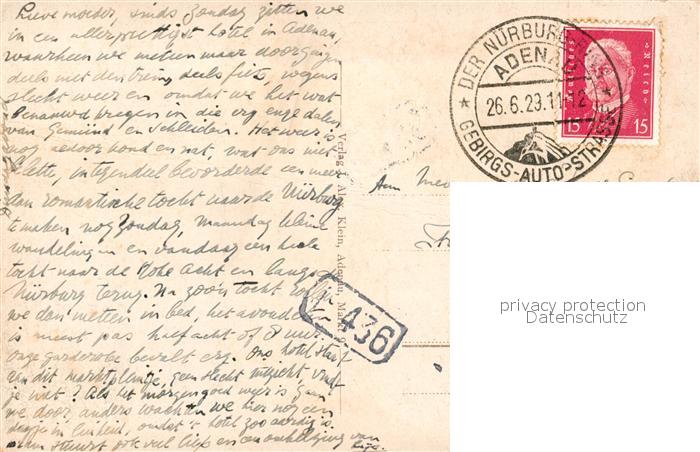 Lieve moeder, sinds Zondag zitten we
in een allerprettigst hotel in Adenau,
waarheen we meteen maar doorgingen
deels met den trein, deels fiets, wegens
slecht weer en omdat we het wat
benauwd kregen in die erg enge dalen
van Gemünd en Schleiden. Het weer is
nog aldoor koud en nat, wat ons niet
belette, integendeel bevorderde een meer
dan romantische tocht naar de Nürburg
te maken nog Zondag, Maandag kleine
wandelingen en vandaag een heele
tocht naar de Hohe Acht en langs
Nürburg terug. Na zoo'n tocht
we dan meteen in bed, het avondeten
is meest pas half acht of 8 uur.
Onze garderobe bevalt erg. Ons hotel staat
aan dit marktpleintje, geen slecht uitzicht, vindt
je niet? Als het morgen goed weer is gaan
we door, anders wachten we hier nog een
dagje in luiheid, omdat 't hotel zoo aardig is.
stuurt ook veel liefs en een omhelzing van
Verlag J. Alex. Klein, Adenau, Markt 9
436
DER NÜRBURG-RING
ADENAU
26.6.29.11-12
GEBIRGS-AUTO-STRASSE
Deutsches Reich
15 15
Aan Mev
privacy protection
Datenschutz